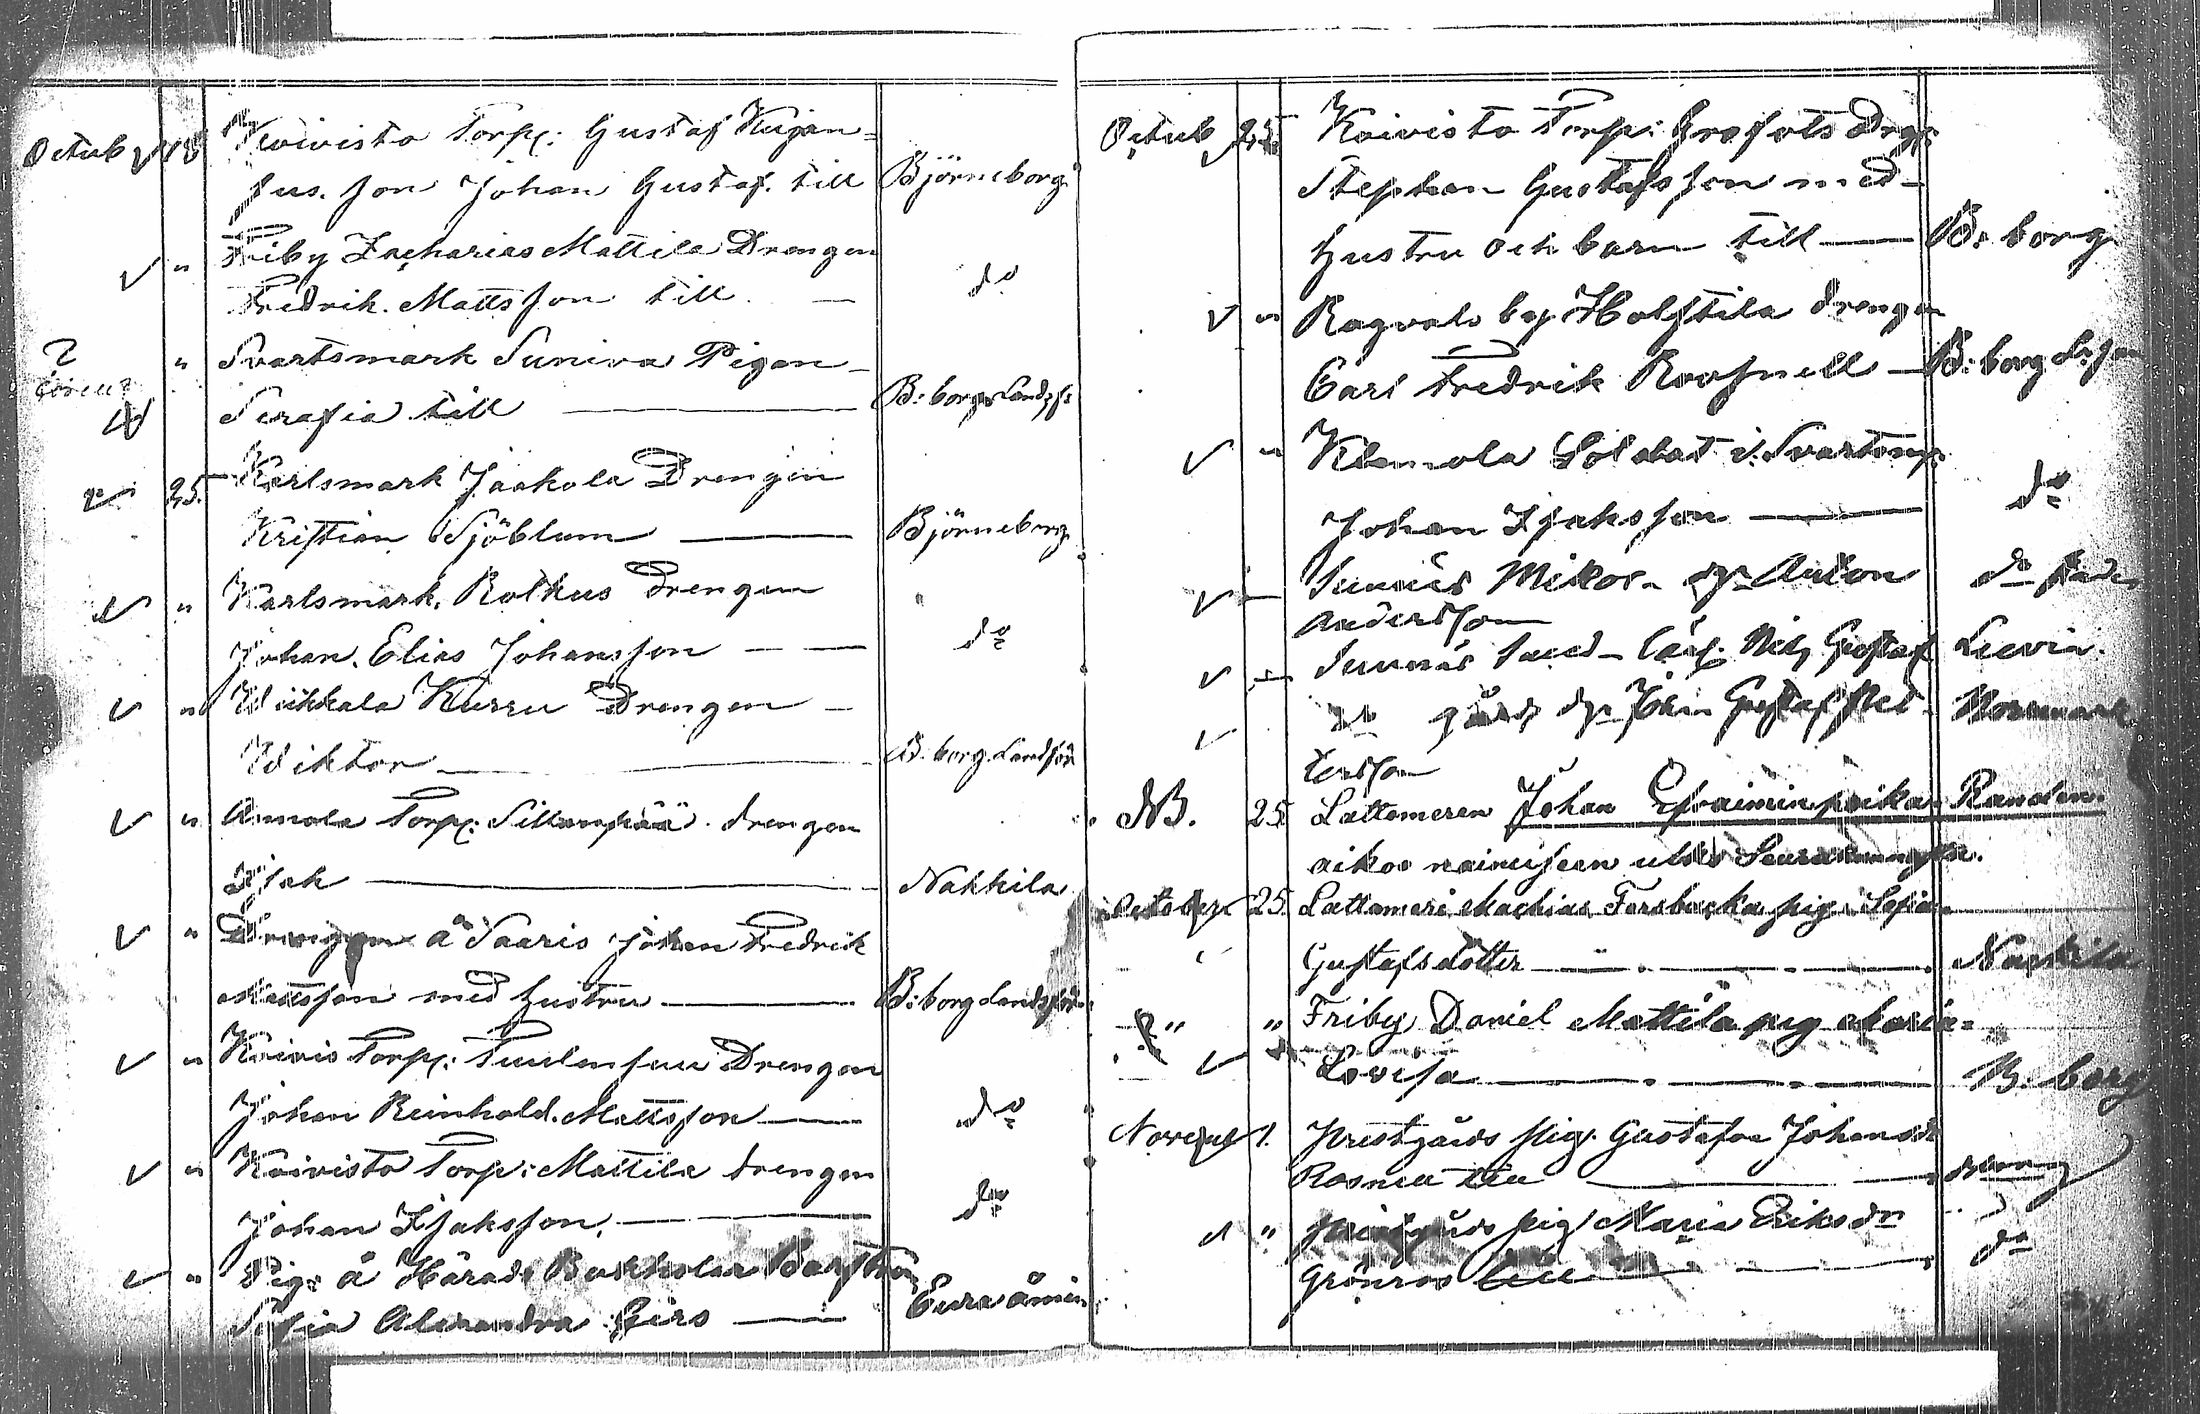 Octub 18 Koivisto Torp: Gustaf Kujan=
sus. son Johan Gustaf. till Björneborg
" Friby Zacharias Mattila Drengen
Fredrik. Mattsson till — do
" Svartsmark Suniva Pigan
Serafia till — B:borgs Landsf:
25. Karlsmark Jaakola Drengen
Kristian Sjöblom — Björneborg
" Karlsmark. Rotkus Drengen
Johan. Elias Johansson — — do
" Wiikkala Kurru Drengen —
Wiktor — B. borg. Landsför
" Annola Torp: Sillanpää. drengen
Isak — Nakkila
" Drengen å Saaris Johan Fredrik
Mattsson med hustru — B:borg Landsför
" Koivis Torp: Tuulensuu Drengen
Johan Reinhold. Mattsson — do
" Koivisto Torp: Mattila drengen
Johan Isaksson. — do
" Pig: å Härads
Sofia Alexandra — Eura åmin
Octub 25 Koivisto Torp: Grafots Drg:
Stephan Gustafsson med
hustru och barn till — B: borg
" Ragvals by Holstila drengen
Carl Fredrik Roosnell — B: borg
" Klemola Soldat i Svartsm:
Johan Isaksson — do
Sunnäs Mikos Anton do
Andersson
Sunnäs Gustaf Luvia.
gårds Johan Gustaf Norrmark
tersson
NB. 25. Lattomeren Johan Efraimin poika
aikoo naimiseen
October 25. Lattomeri Machias Forsbacka pig. Sofia
Gustafsdotter — . — . — . Nackila
" " Friby Daniel Mattila pig Maria=
Lovisa — . — . — B. borg
1. Prestgårds pig. Gustafva Johansdr
till —
" pig Maria Eriksdr
Grönroos till — do